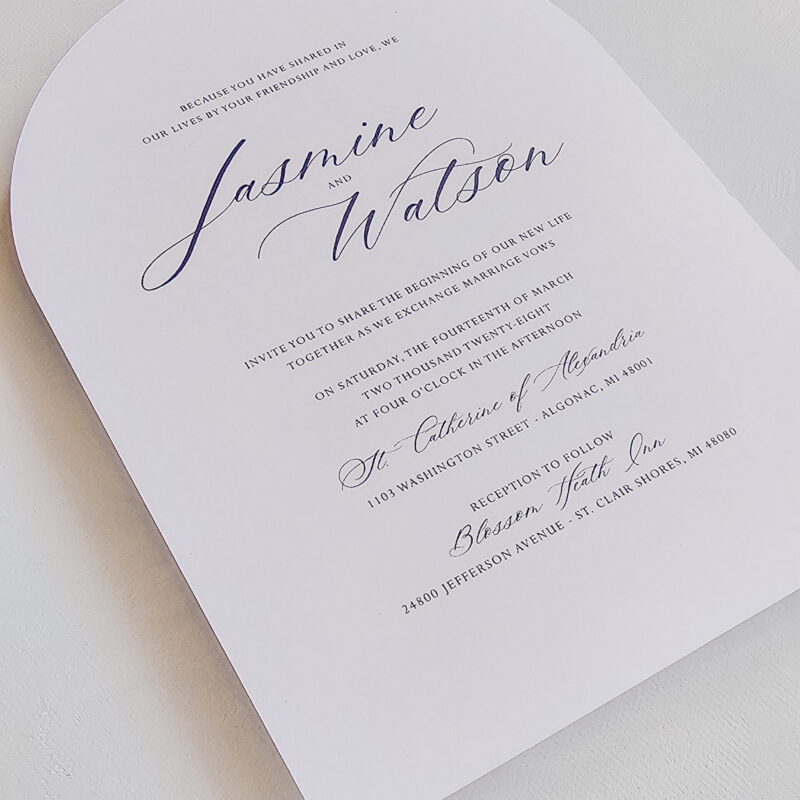 BECAUSE YOU HAVE SHARED IN
OUR LIVES BY YOUR FRIENDSHIP AND LOVE, WE
Jasmine
AND
Watson
INVITE YOU TO SHARE THE BEGINNING OF OUR NEW LIFE
TOGETHER AS WE EXCHANGE MARRIAGE VOWS
ON SATURDAY, THE FOURTEENTH OF MARCH
TWO THOUSAND TWENTY-EIGHT
AT FOUR O'CLOCK IN THE AFTERNOON
St. Catherine of Alexandria
1103 WASHINGTON STREET - ALGONAC, MI 48001
RECEPTION TO FOLLOW
Blossom Heath Inn
24800 JEFFERSON AVENUE - ST. CLAIR SHORES, MI 48080